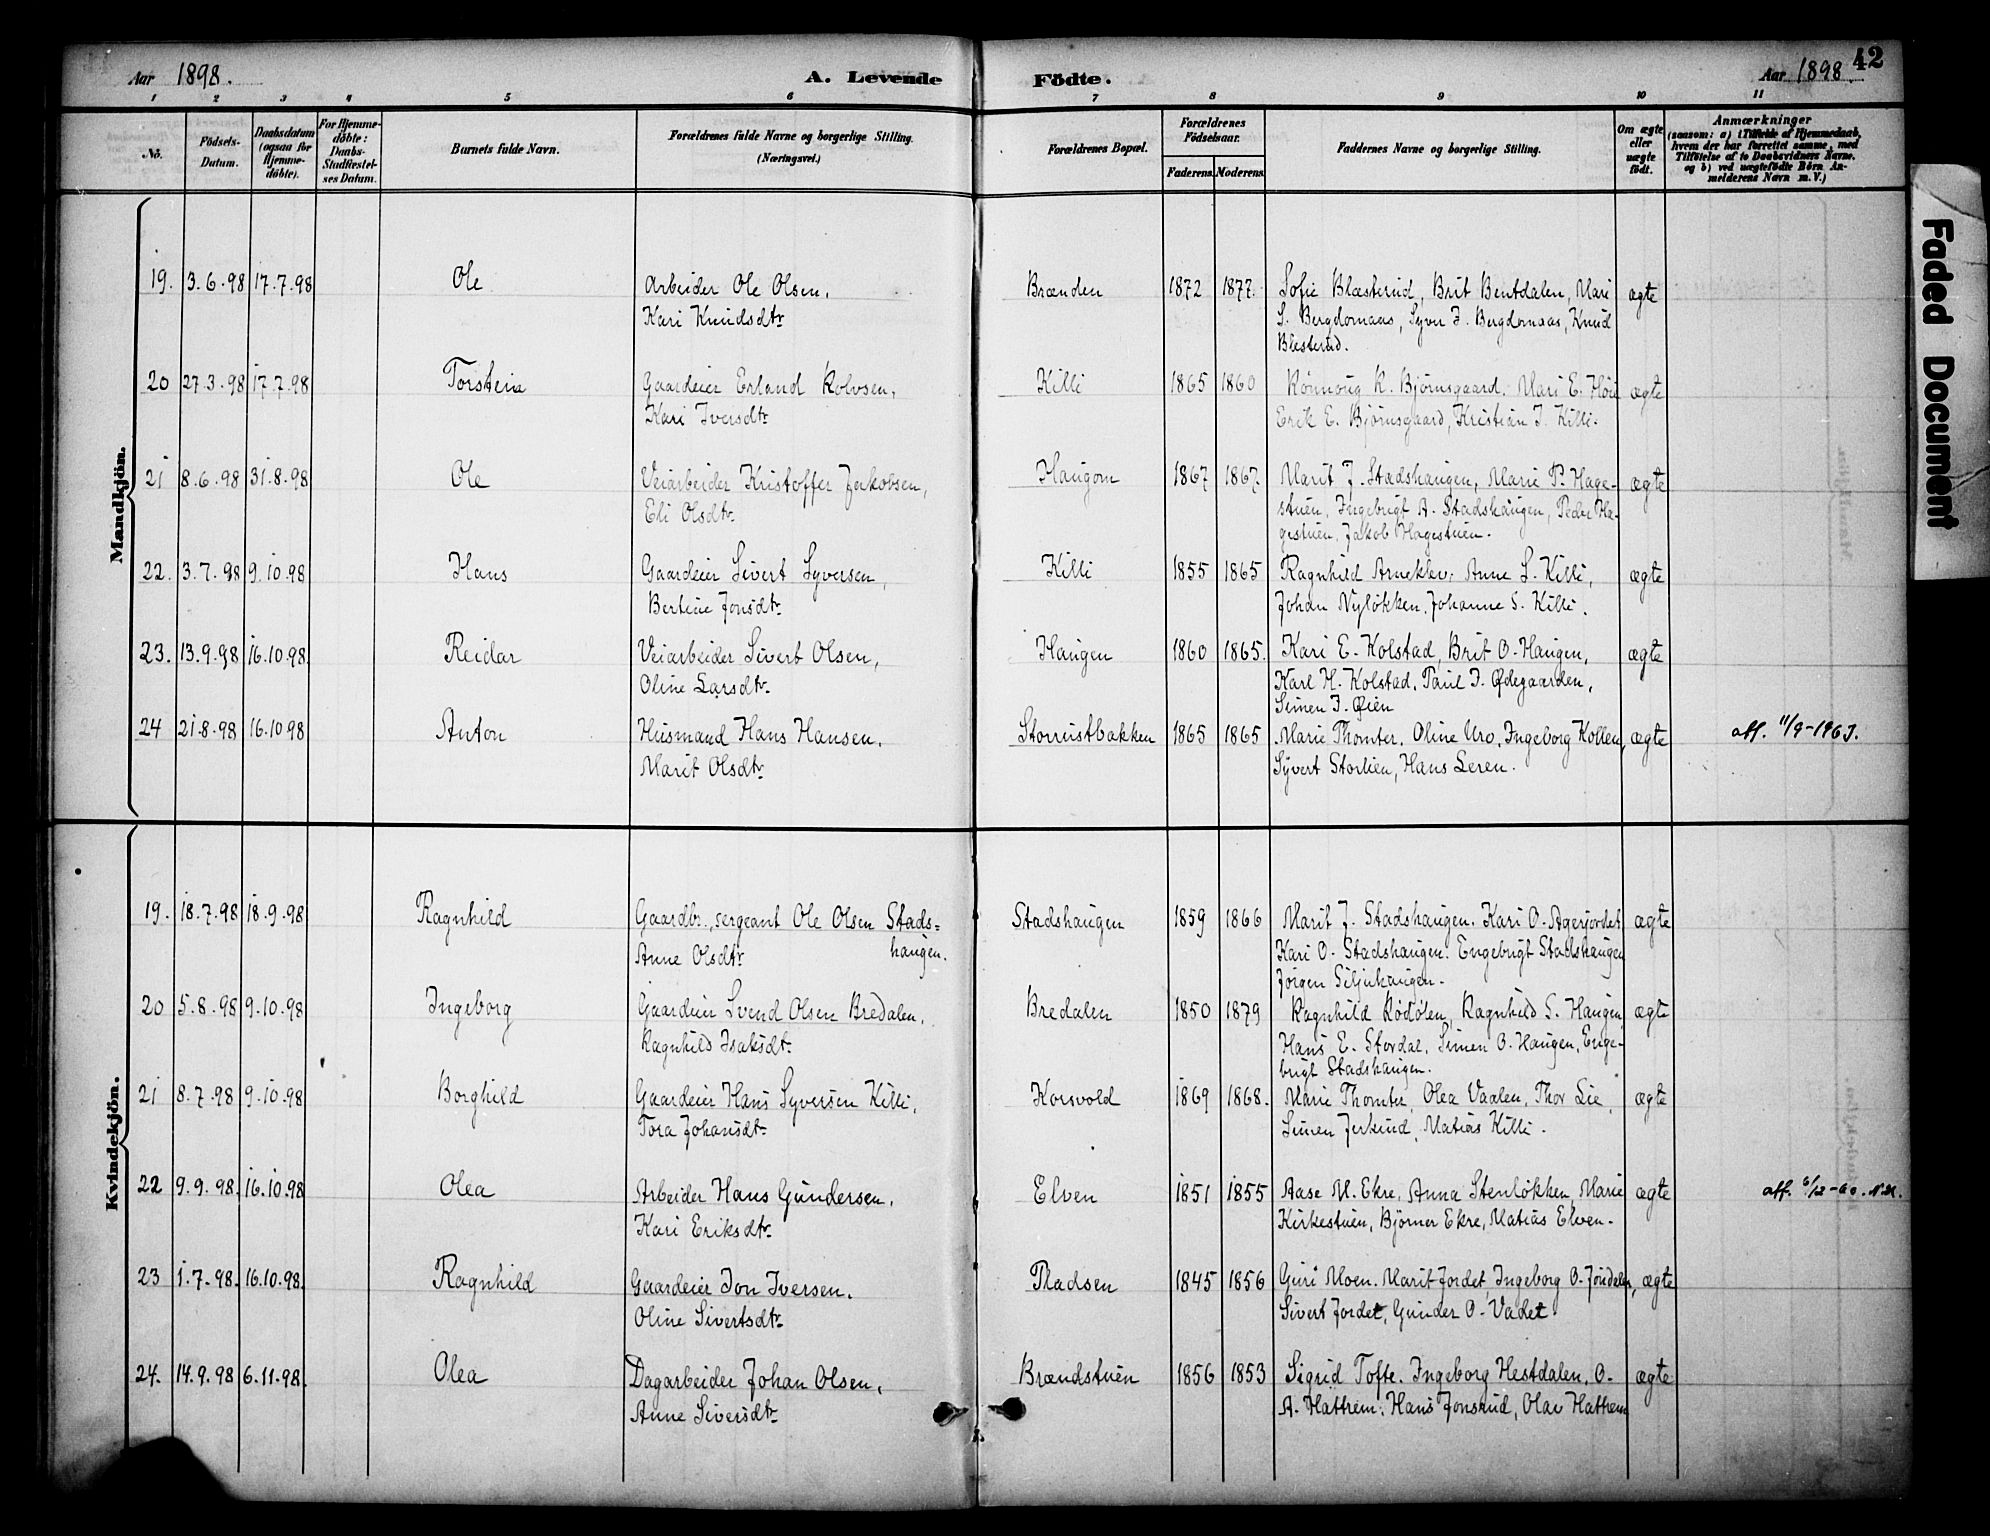 Aar 1898. A. Levende Födte. Aar 1898. 42
1 2 3 4 5 6 7 8 9 10 11
No. Födsels-Datum. Daabsdatum (ogsaa for Hjemme-döbte). For Hjemme-döbte: Daabs-Stadfæstel-ses Datum. Barnets fulde Navn. Forældrenes fulde Navne og borgerlige Stilling. (Næringsvei.) Forældrenes Bopæl. Forældrenes Födselsaar. Faderens. Moderens. Faddernes Navne og borgerlige Stilling. Om ægte eller uægte födt. Anmærkninger (saasom: a) i Tilfælde af Hjemmedaab, hvem der har forrettet samme, med Tilföielse af to Daabsvidners Navne. og b) ved uægtefödte Börn An-melderens Navn m. V.)
Mandkjön.
19. 3.6.98 17.7.98 Ole Arbeider Ole Olsen, Brænden 1872 1877. Sofie Blæsterud, Brit Bentdalen, Mari ægte
Kari Knudsdtr. S. Bergdomaas, Syver J. Bergdomaas, Knud
Blesterud.
20 27.3.98 17.7.98 Torstein Gaardeier Erland Rolvsen, Killi 1865 1860 Rönnoug K. Björnsgaard. Mari E. Höie ægte
Kari Iversdtr. Erik E. Björnsgaard, Kristian I. Killi.
21 8.6.98 31.8.98 Ole Veiarbeider Kristoffer Jakobsen, Haugom 1867 1867. Marit J. Stadshaugen, Marie P. Hage- ægte
Eli Olsdtr. stuen, Ingebrigt A. Stadshaugen, Peder Ha-
gestuen, Jakob Hagestuen.
22. 3.7.98 9.10.98 Hans Gaardeier Sivert Syversen, Killi 1855 1865 Ragnhild Arneklev. Anne S. Killi, ægte
Bertine Jonsdtr. Johan Nylökken, Johanne S. Killi.
23. 13.9.98 16.10.98. Reidar Veiarbeider Sivert Olsen, Haugen 1860 1865. Kari E. Kolstad, Brit O. Haugen, ægte
Oline Larsdtr. Karl H. Kolstad, Paul J. Ødegaarden,
Simen J. Øien
24 21.8.98 16.10.98 Anton Husmand Hans Hansen, Storrustbakken 1865 1865 Marie Thomter. Oline Uro, Ingeborg Kollen, ægte aff. 11/9-1963.
Marit Olsdtr. Syvert Storlien, Hans Leren.
Kvindekjön.
19. 18.7.98 18.9.98 Ragnhild Gaardbr., sergeant Ole Olsen Stads= Stadshaugen 1859 1866 Marit J. Stadshaugen. Kari O. Agerjordet ægte
Anne Olsdtr haugen. Kari O. Stadshaugen. Engebrigt Stadshaugen
Jörgen Siljuhaugen.
20 5.8.98 9.10.98 Ingeborg Gaardeier Svend Olsen Bredalen, Bredalen 1850 1879 Ragnhild Rödölen, Ragnhild S. Haugen, ægte
Ragnhild Isaksdtr. Hans E. Stordal, Simen O. Haugen, Enge-
brigt Stadshaugen.
21 8.7.98 9.10.98 Borghild Gaardeier Hans Syversen Killi, Korsvold 1869 1868. Marie Thomter, Olea Vaalen, Thor Lie, ægte
Tora Johansdtr. Simen Jerkind, Matias Killi.
22 9.9.98. 16.10.98 Olea Arbeider Hans Gundersen, Elven 1851 1855 Aase M. Ekre, Anna Stenlökken, Marie ægte aff. 6/12-60.
Kari Eriksdtr. Kirkestuen, Björner Ekre, Matias Elven.
23 1.7.98. 16.10.98. Ragnhild Gaardeier Jon Iversen, Pladsen 1845 1856 Guri Moen. Marit Jordet, Ingeborg O. Jöndalen, ægte
Oline Sivertsdtr. Sivert Jordet, Gunder O. Vadet.
24. 14.9.98 6.11.98. Olea Dagarbeider Johan Olsen, Brændstuen 1856 1853 Sigrid Tofte. Ingeborg Hestdalen, O. ægte
Anne Siversdtr. A. Hattrem. Hans Jonsrud, Olav Hattrem
Faded Document